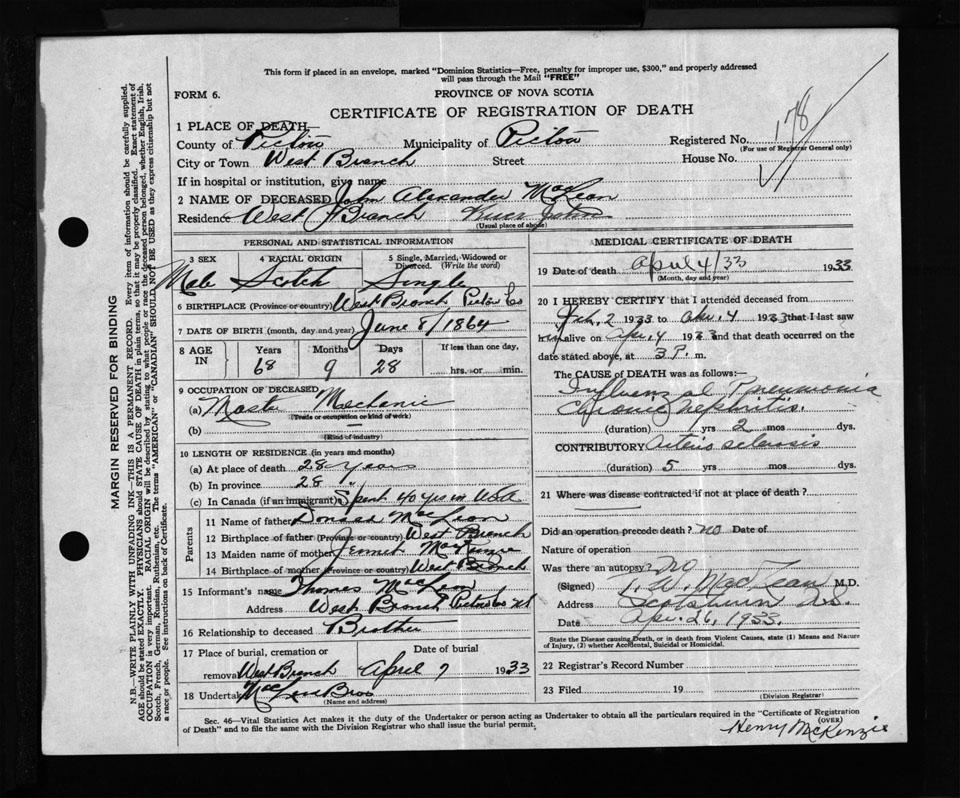 This form if placed in an envelope, marked "Dominion Statistics—Free, penalty for improper use, $300," and properly addressed
will pass through the Mail "FREE"
FORM 6.
PROVINCE OF NOVA SCOTIA
CERTIFICATE OF REGISTRATION OF DEATH
178
1 PLACE OF DEATH—
County of Pictou Municipality of Pictou Registered No.
(For use of Registrar General only)
City or Town West Branch Street House No.
If in hospital or institution, give name
2 NAME OF DECEASED John Alexander MacLean
Residence West Branch River John
(Usual place of abode)
PERSONAL AND STATISTICAL INFORMATION
3 SEX 4 RACIAL ORIGIN 5 Single, Married, Widowed or Divorced. (Write the word)
Male Scotch Single
6 BIRTHPLACE (Province or country) West Branch Pictou Co
7 DATE OF BIRTH (month, day and year) June 8/1864
8 AGE IN Years Months Days If less than one day,
68 9 28 hrs. or min.
9 OCCUPATION OF DECEASED
(a) Mechanic
(Trade or occupation or kind of work)
(b)
(Kind of industry)
10 LENGTH OF RESIDENCE (in years and months)
(a) At place of death 28 years
(b) In province 28 "
(c) In Canada (if an immigrant) Spent 40 yrs in USA
Parents
11 Name of father MacLean
12 Birthplace of father (Province or country) West Branch
13 Maiden name of mother
14 Birthplace of mother (Province or country) West Branch
15 Informant's name Thomas MacLean
Address West Branch Pictou Co NS
16 Relationship to deceased Brother
17 Place of burial, cremation or removal Date of burial
West Branch April 7 1933
18 Undertaker Bros
(Name and address)
MEDICAL CERTIFICATE OF DEATH
19 Date of death April 4/33 1933
(Month, day and year)
20 I HEREBY CERTIFY that I attended deceased from
Feb. 2 1933 to Apr. 4 1933 that I last saw
him alive on Apr. 4 1933 and that death occurred on the
date stated above, at 3 P. m.
The CAUSE of DEATH was as follows:—
Influenzal Pneumonia
Chronic Nephritis.
(duration) yrs 2 mos dys.
CONTRIBUTORY Arterio sclerosis
(duration) 5 yrs mos dys.
21 Where was disease contracted if not at place of death?
Did an operation precede death? no Date of
Nature of operation
Was there an autopsy? no
(Signed) T. W. MacLean M.D.
Address Scotsburn N.S.
Date Apr. 26, 1933.
State the Disease causing Death, or in death from Violent Causes, state (1) Means and Nature
of Injury, (2) whether Accidental, Suicidal or Homicidal.
22 Registrar's Record Number
23 Filed 19
(Division Registrar)
Sec. 46—Vital Statistics Act makes it the duty of the Undertaker or person acting as Undertaker to obtain all the particulars required in the "Certificate of Registration
of Death" and to file the same with the Division Registrar who shall issue the burial permit.
(OVER)
Henry McKenzie
MARGIN RESERVED FOR BINDING
N.B.—WRITE PLAINLY WITH UNFADING INK—THIS IS A PERMANENT RECORD. Every item of information should be carefully supplied.
AGE should be stated EXACTLY. PHYSICIANS should STATE CAUSE OF DEATH in plain terms, so that it may be properly classified. Exact statement of
OCCUPATION is very important. RACIAL ORIGIN will be described by stating to what people or race the deceased person belonged, whether English, Irish,
Scotch, French, German, Russian, Ruthenian, etc. The terms "AMERICAN" or "CANADIAN" SHOULD NOT BE USED as they express citizenship but not
a race or people. See instructions on back of Certificate.